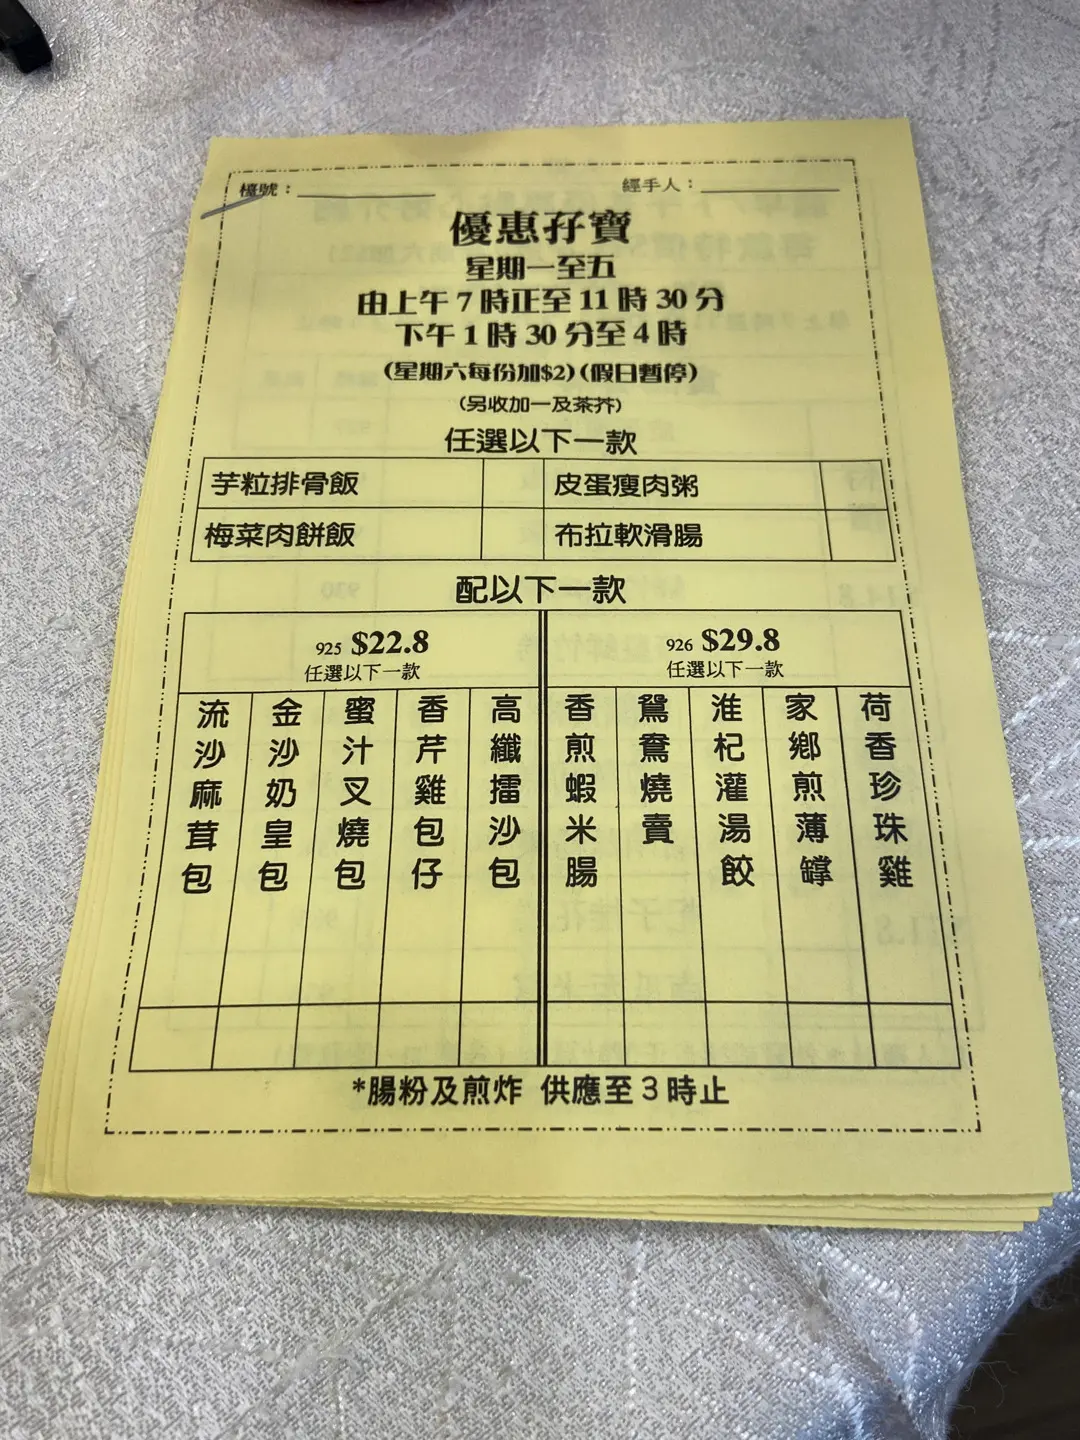 檯號：
經手人：
優惠孖寶
星期一至五
由上午 7 時正至 11 時 30 分
下午 1 時 30 分至 4 時
(星期六每份加$2) (假日暫停)
(另收加一及茶芥)
任選以下一款
芋粒排骨飯
皮蛋瘦肉粥
梅菜肉餅飯
布拉軟滑腸
配以下一款
925 $22.8
任選以下一款
926 $29.8
任選以下一款
流沙麻茸包
金沙奶皇包
蜜汁叉燒包
香芹雞包仔
高纖擂沙包
香煎蝦米腸
鴛鴦燒賣
淮杞灌湯餃
家鄉煎薄罉
荷香珍珠雞
*腸粉及煎炸 供應至 3 時止